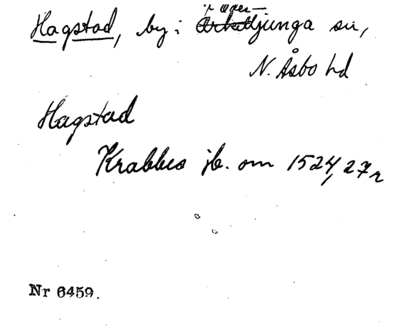 Hagstad, by i Örkelljunga sn,
N. Åsbo hd
Hagstad
Krabbes jb. om 1524, 27 r
Nr 6459.